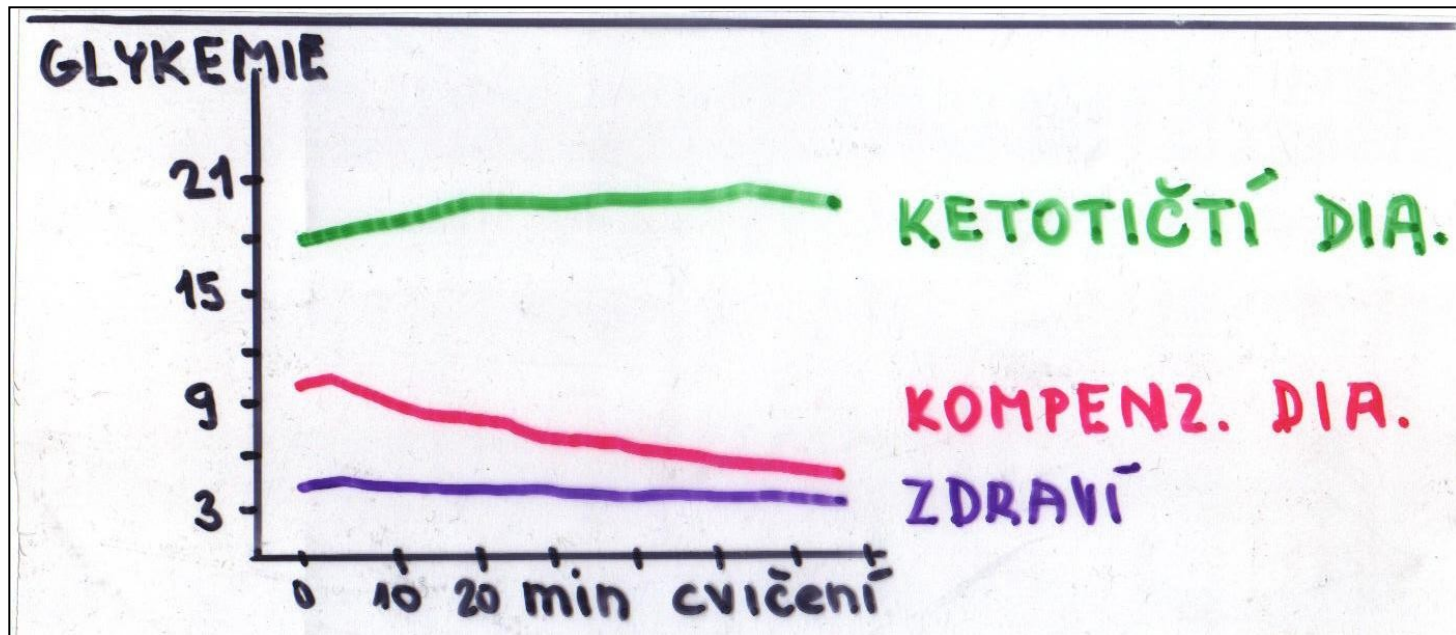 GLYKEMIE
21
15
9
3
0 10 20 min cvičení
KETOTIČTÍ DIA.
KOMPENZ. DIA.
ZDRAVÍ